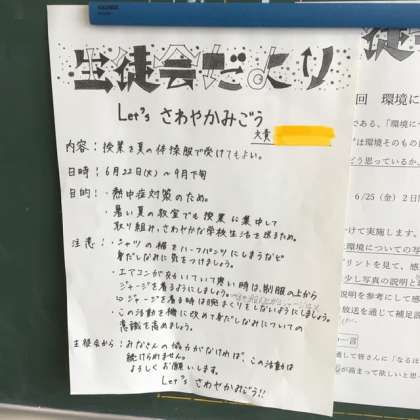 生徒会だより
Let's さわやかみごう
文責
内容：授業を夏の体操服で受けてもよい。
日時：6月22日(火)〜9月下旬
目的：・熱中症対策のため。
・暑い夏の教室でも授業に集中して
取り組み、さわやかな学校生活を送るため。
注意：・シャツの裾をハーフパンツにしまうなど
身だしなみに気をつけましょう。
・エアコンが効いていて寒い時は、制服の上から
ジャージを着るようにしましょう。
↳ジャージを着る時は腕まくりをしないようにしましょう。
・この活動を機に改めて身だしなみについての
意識を高めましょう。
生徒会から：みなさんの協力がなければ、この活動は
続けられません。
よろしくお願いします。
Let's さわやかみごう!!
回 環境に
である、「環境に
は環境そのもの
どう思っているか、
6/25（金）2日
けて実施します。
環境についての写
リントを見て、感
少し写真の説明と
説明を参考にして感
放送を通じて補足説
一言
通じて皆さんに「なるほ
が高まって欲しいと思